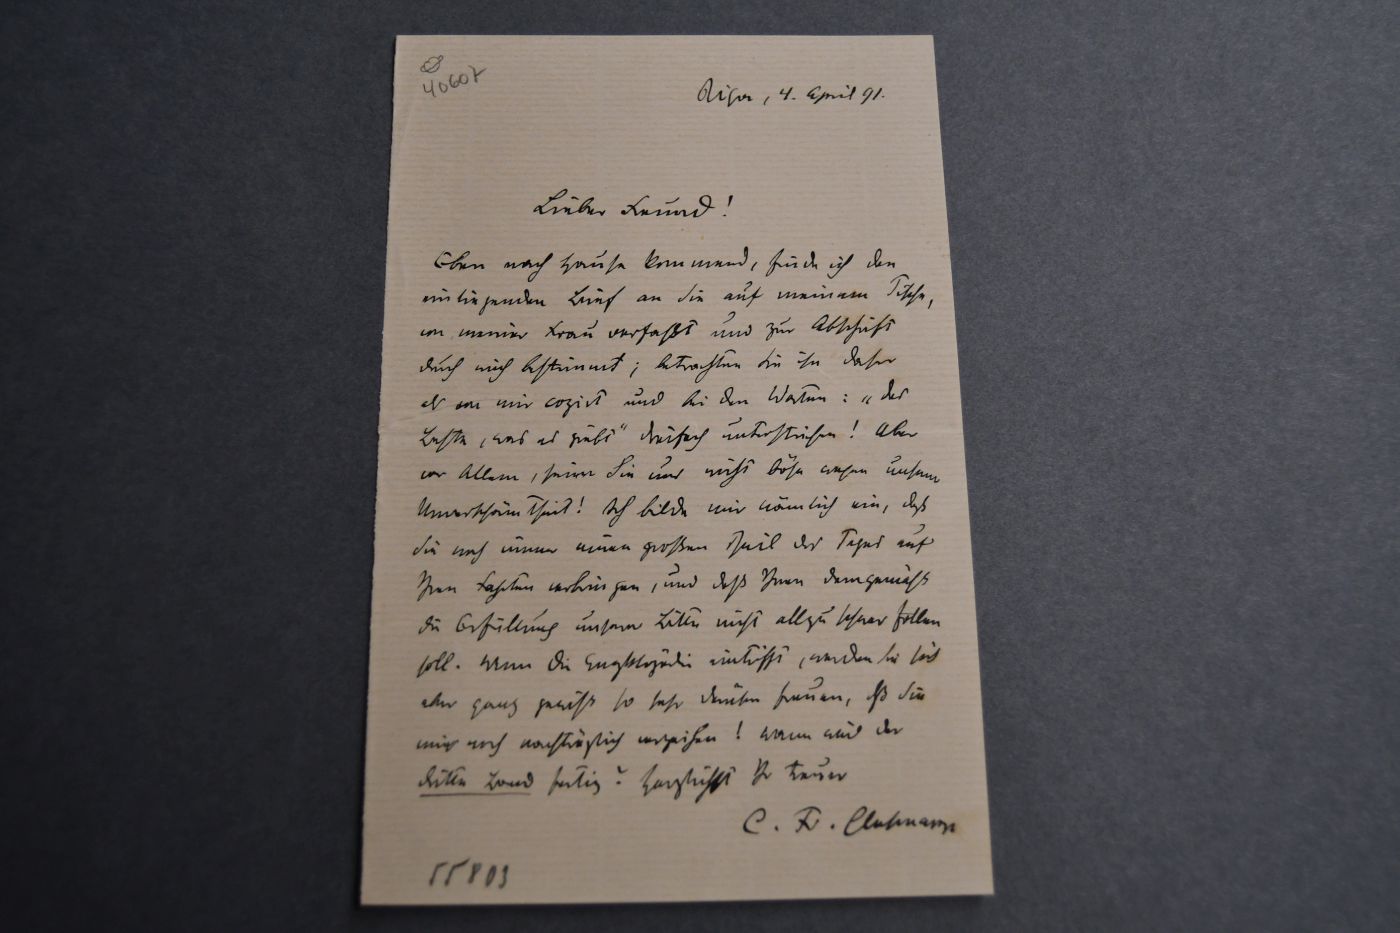 40607
Riga, 4. April 91.
Lieber Freund!
Eben nach Hause kommend, finde ich den
einliegenden Brief an Sie auf meinem Tische,
von meiner Frau verfaßt und zur Abschrift
durch mich bestimmt; betrachten Sie ihn daher
als von mir copirt und bei den Worten: „das
Beste, was es giebt“ dreifach unterstrichen! Aber
vor Allem, seien Sie uns nicht böse wegen unserer
Unverschämtheit! Ich bilde mir nämlich ein, daß
Sie noch immer einen großen Theil des Tages auf
Ihren Fahrten verbringen, und daß Ihnen demgemäß
die Erfüllung unserer Bitte nicht allzu schwer fallen
soll. Wenn die Encyklopädie eintrifft, werden Sie sich
aber ganz gewiß so sehr darüber freuen, daß Sie
mir noch nachträglich verzeihen! Wann wird der
dritte Band fertig? Herzlichst Ihr treuer
C. Fr. Glasenapp
55803